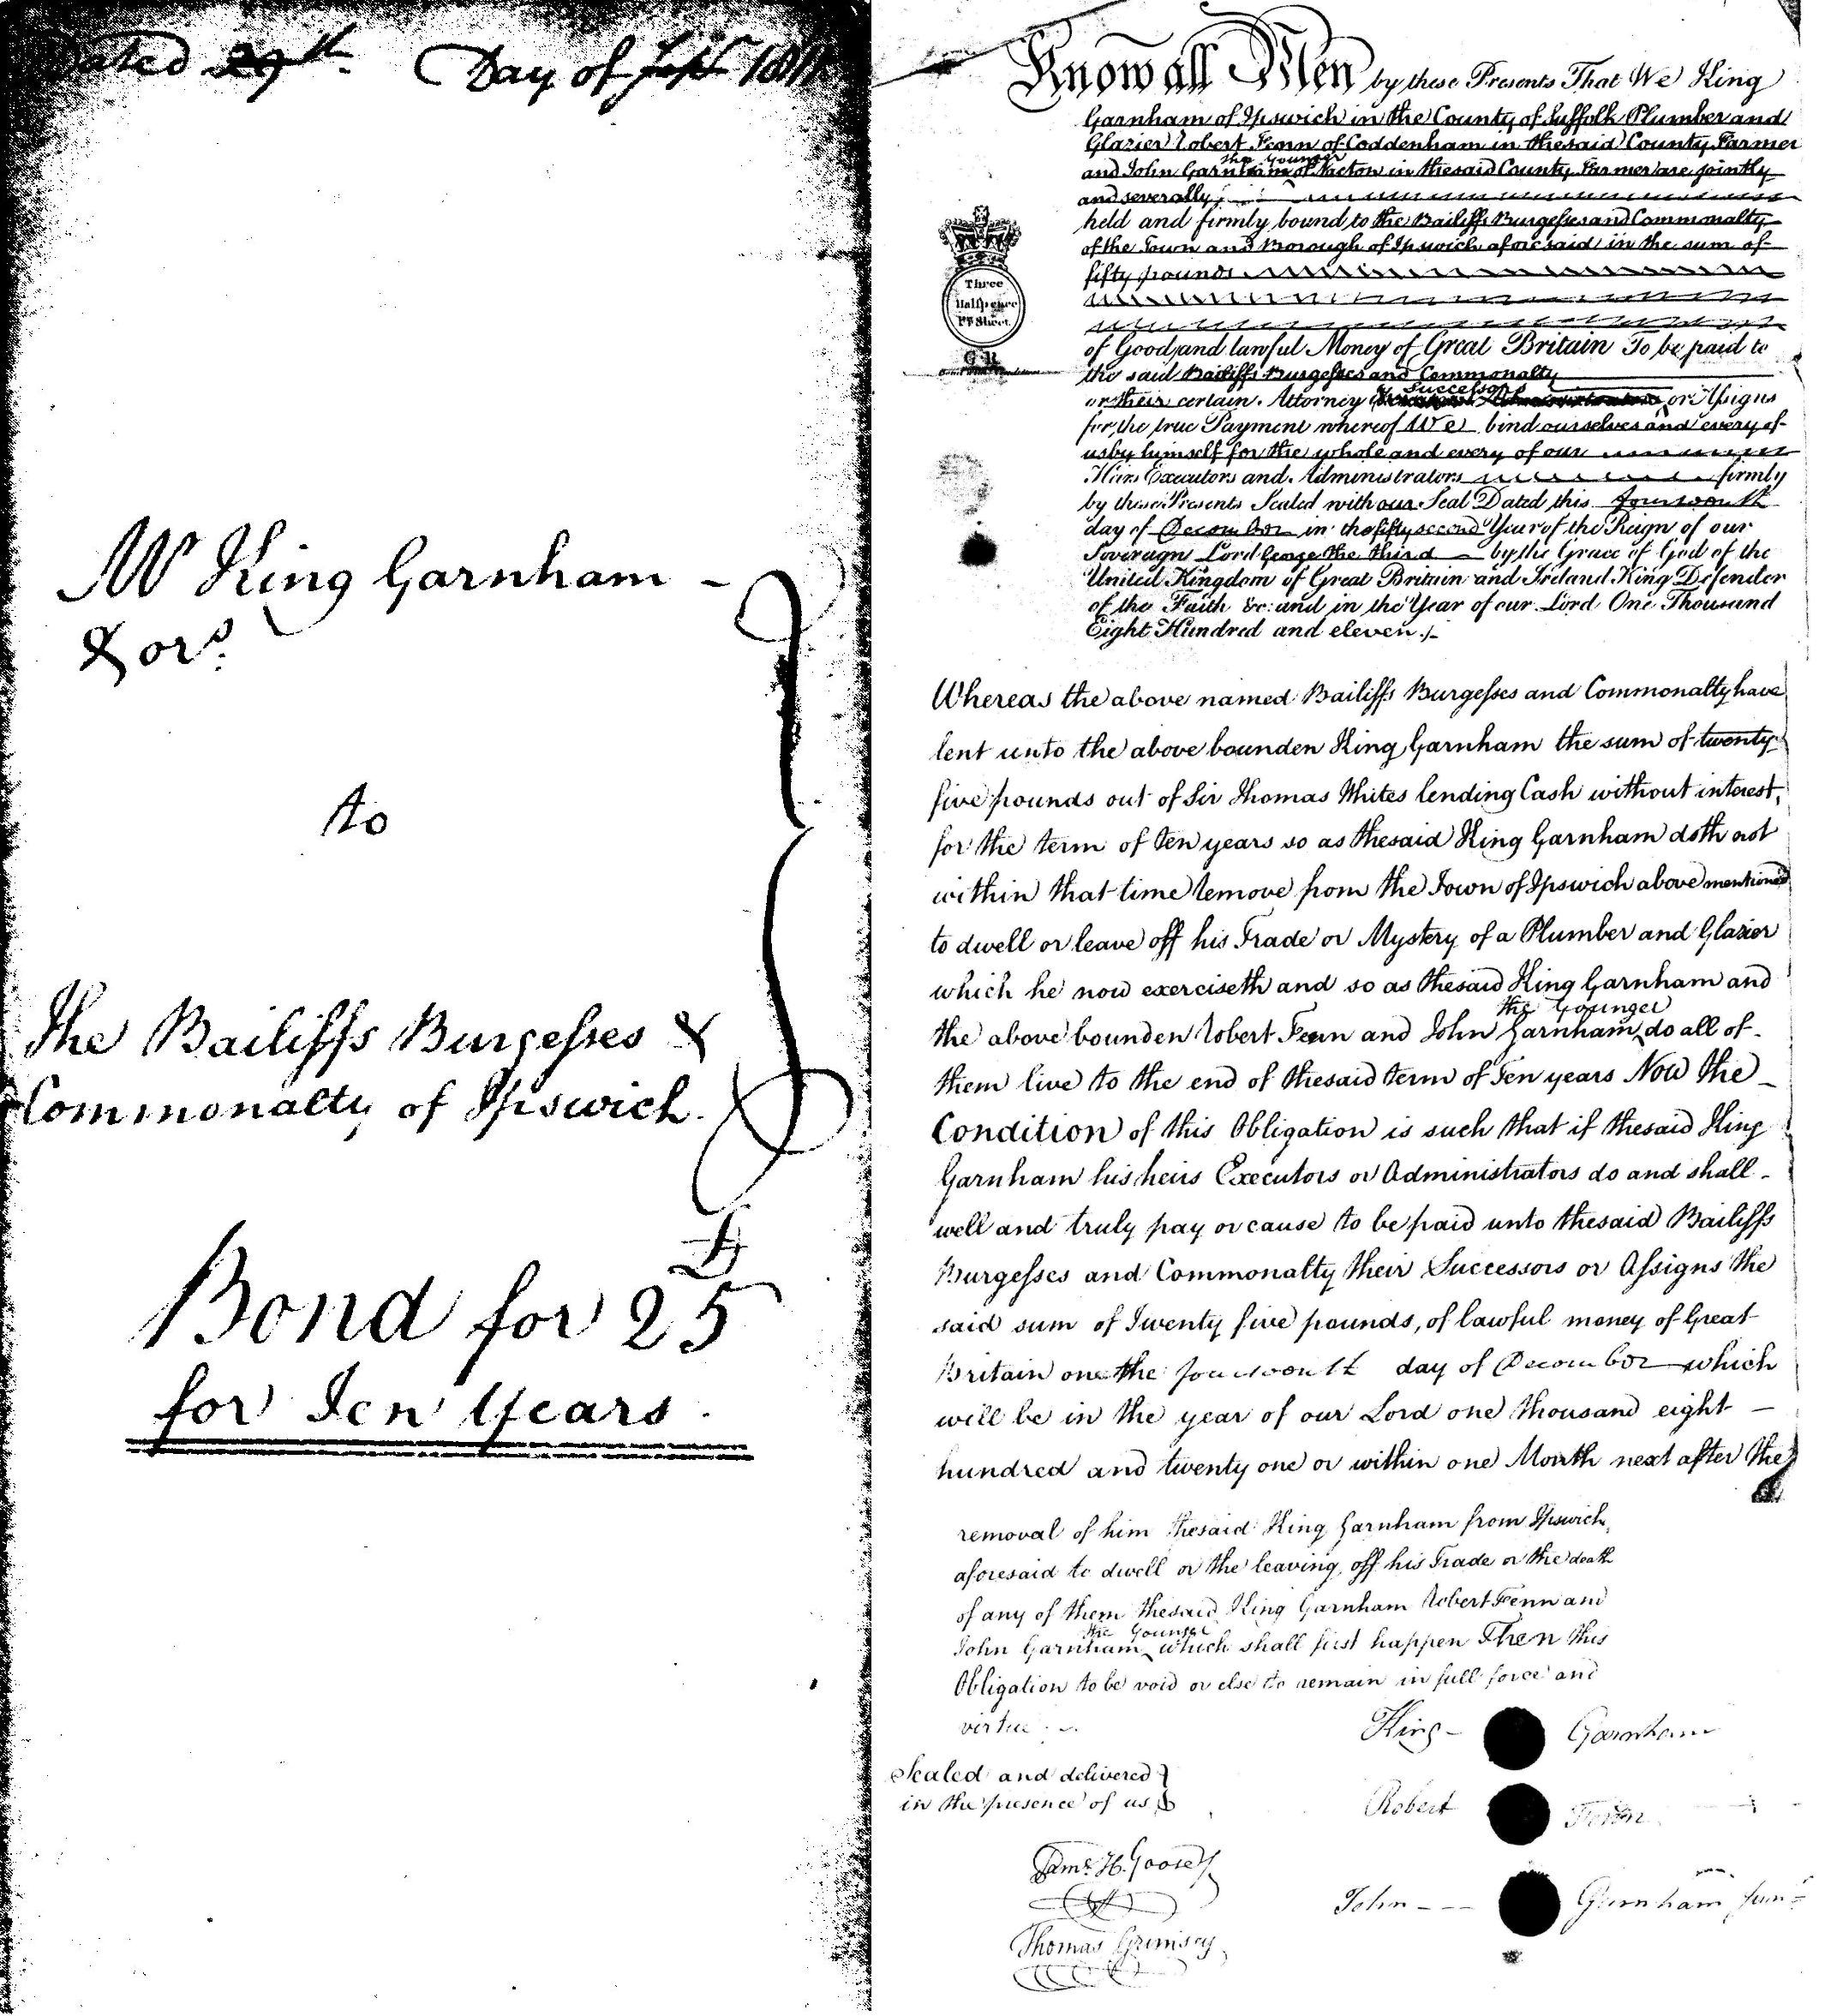 Dated 29th. Day of Sept 1811
Mr King Garnham
& ors.
to
The Bailiffs Burgesses &
Commonalty of Ipswich.
Bond for 25£
for Ten Years.
Know all Men by these Presents That We King
Garnham of Ipswich in the County of Suffolk Plumber and
Glazier Robert Fenn of Coddenham in the said County Farmer
the younger
and John Garnham of Nacton in the said County Farmer are jointly
and severally
held and firmly bound to the Bailiffs Burgesses and Commonalty
of the Town and Borough of Ipswich aforesaid in the sum of
fifty pounds
Three
Halfpence
Pr. Sheet.
G R
of Good and lawful Money of Great Britain To be paid to
the said Bailiffs Burgesses and Commonalty
Successors
or their certain Attorney or Assigns
for the true Payment whereof We bind ourselves and every of
us by himself for the whole and every of our
Heirs Executors and Administrators firmly
by these Presents Sealed with our Seal Dated this fourteenth
day of December in the fifty second Year of the Reign of our
Sovereign Lord George the third by the Grace of God of the
United Kingdom of Great Britain and Ireland King Defender
of the Faith &c: and in the Year of our Lord One Thousand
Eight Hundred and eleven ./-
Whereas the above named Bailiffs Burgesses and Commonalty have
lent unto the above bounden King Garnham the sum of twenty
five pounds out of Sir Thomas Whites lending Cash without interest,
for the term of ten years so as the said King Garnham doth not
within that time remove from the Town of Ipswich above mentioned
to dwell or leave off his Trade or Mystery of a Plumber and Glazier
which he now exerciseth and so as the said King Garnham and
the Younger
the above bounden Robert Fenn and John Garnham do all of
them live to the end of the said term of Ten years Now the
Condition of this Obligation is such that if the said King
Garnham his heirs Executors or Administrators do and shall
well and truly pay or cause to be paid unto the said Bailiffs
Burgesses and Commonalty their Successors or Assigns the
said sum of Twenty five pounds, of lawful money of Great
Britain one the fourteenth day of December which
will be in the year of our Lord one thousand eight
hundred and twenty one or within one Month next after the
removal of him the said King Garnham from Ipswich
aforesaid to dwell or the leaving off his Trade or the death
of any of them the said King Garnham Robert Fenn and
the Younger
John Garnham which shall first happen Then this
Obligation to be void or else to remain in full force and
virtue
King Garnham
Sealed and delivered
in the presence of us
Robert Fenn
John Garnham Junr
Thomas Grimsey